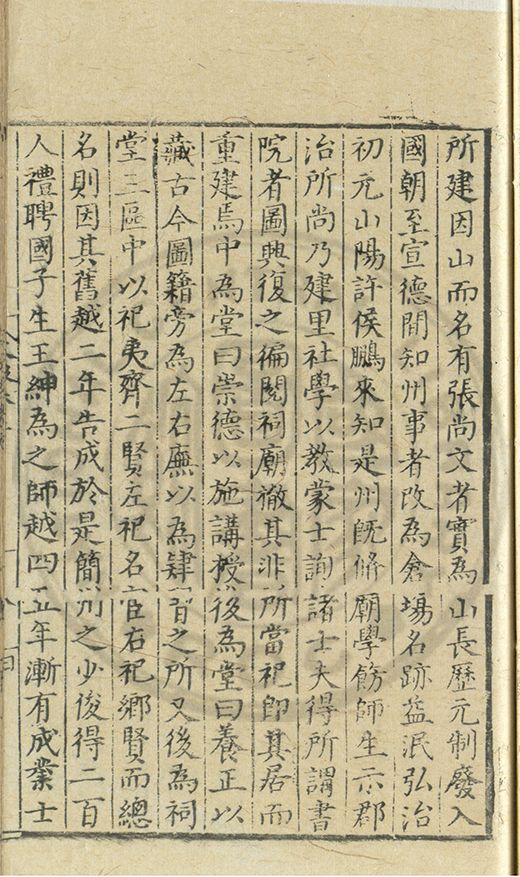 所建因山而名有張尚文者實為山長歷元制廢入
國朝至宣德間知州事者改為倉場名跡益泯弘治
初元山陽許侯鵬來知是州既脩廟學飭師生示郡
治所尚乃建里社學以教蒙士詢諸士夫得所謂書
院者圖興復之徧閱祠廟徹其非所當祀即其居而
重建焉中為堂曰崇德以施講授後為堂曰養正以
藏古今圖籍旁為左右廡以為肄習之所又後為祠
堂三區中以祀夷齊二賢左祀名宦右祀鄉賢而總
名則因其舊越二年告成於是簡州之少俊得二百
人禮聘國子生王紳為之師越四五年漸有成業士